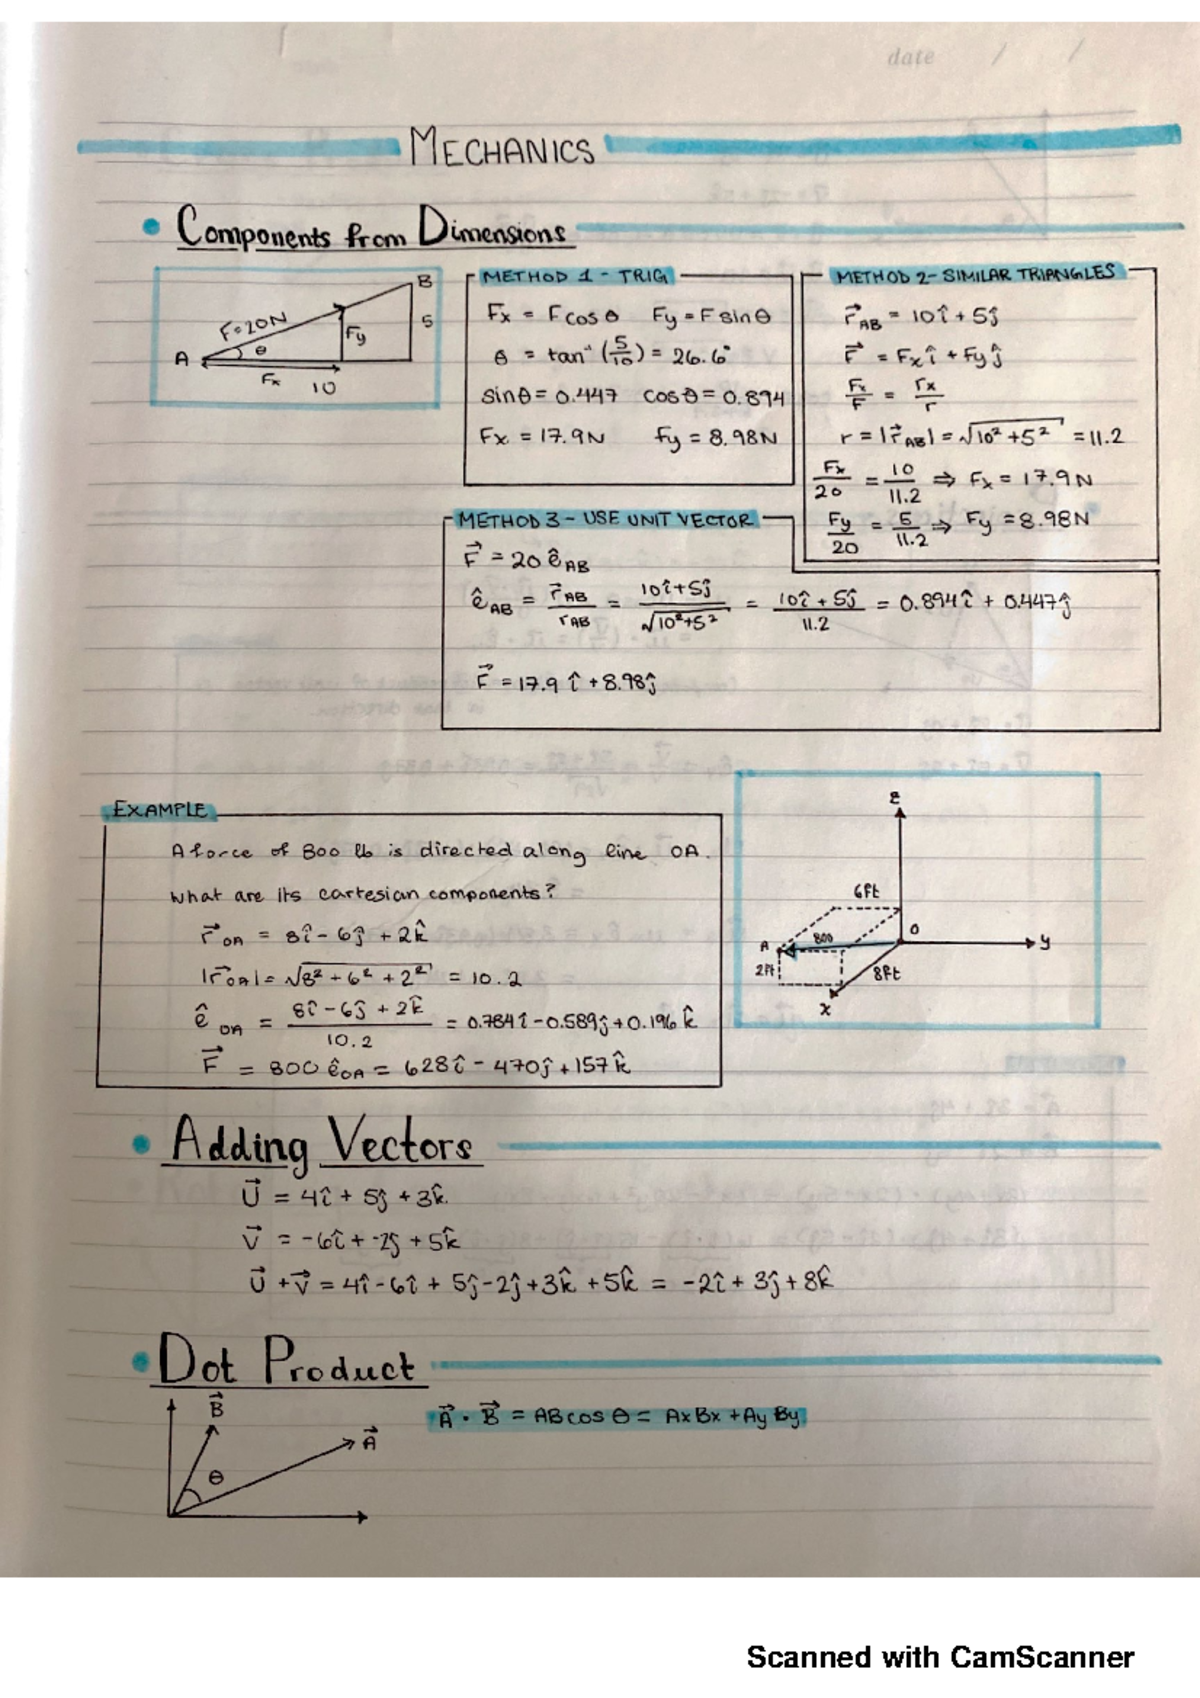 date / /
MECHANICS
• Components from Dimensions
A
B
F=20N
θ
Fy
5
Fx
10
METHOD 1 - TRIG
Fx = Fcosθ Fy = Fsinθ
θ = tan⁻¹ (5/10) = 26.6°
sinθ = 0.447 cosθ = 0.894
Fx = 17.9N Fy = 8.98N
METHOD 2 - SIMILAR TRIANGLES
r⃗AB = 10î + 5ĵ
F⃗ = Fxî + Fyĵ
Fx/F = rx/r
r = |r⃗AB| = √10² + 5² = 11.2
Fx/20 = 10/11.2 ⇒ Fx = 17.9N
Fy/20 = 5/11.2 ⇒ Fy = 8.98N
METHOD 3 - USE UNIT VECTOR
F⃗ = 20 êAB
êAB = r⃗AB/rAB = 10î+5ĵ/√10²+5² = 10î + 5ĵ/11.2 = 0.894î + 0.447ĵ
F⃗ = 17.9 î + 8.98ĵ
EXAMPLE
A force of 800 lb is directed along line OA.
What are its cartesian components?
r⃗OA = 8î - 6ĵ + 2k̂
|r⃗OA| = √8² + 6² + 2² = 10.2
êOA = 8î - 6ĵ + 2k̂/10.2 = 0.784î - 0.589ĵ + 0.196k̂
F⃗ = 800 êOA = 628î - 470ĵ + 157k̂
z
6ft
O
A
800
y
2ft
8ft
x
• Adding Vectors
U⃗ = 4î + 5ĵ + 3k̂
V⃗ = -6î + -2ĵ + 5k̂
U⃗ + V⃗ = 4î - 6î + 5ĵ - 2ĵ + 3k̂ + 5k̂ = -2î + 3ĵ + 8k̂
• Dot Product
B⃗
A⃗
θ
A⃗ · B⃗ = ABcosθ = AxBx + AyBy
Scanned with CamScanner